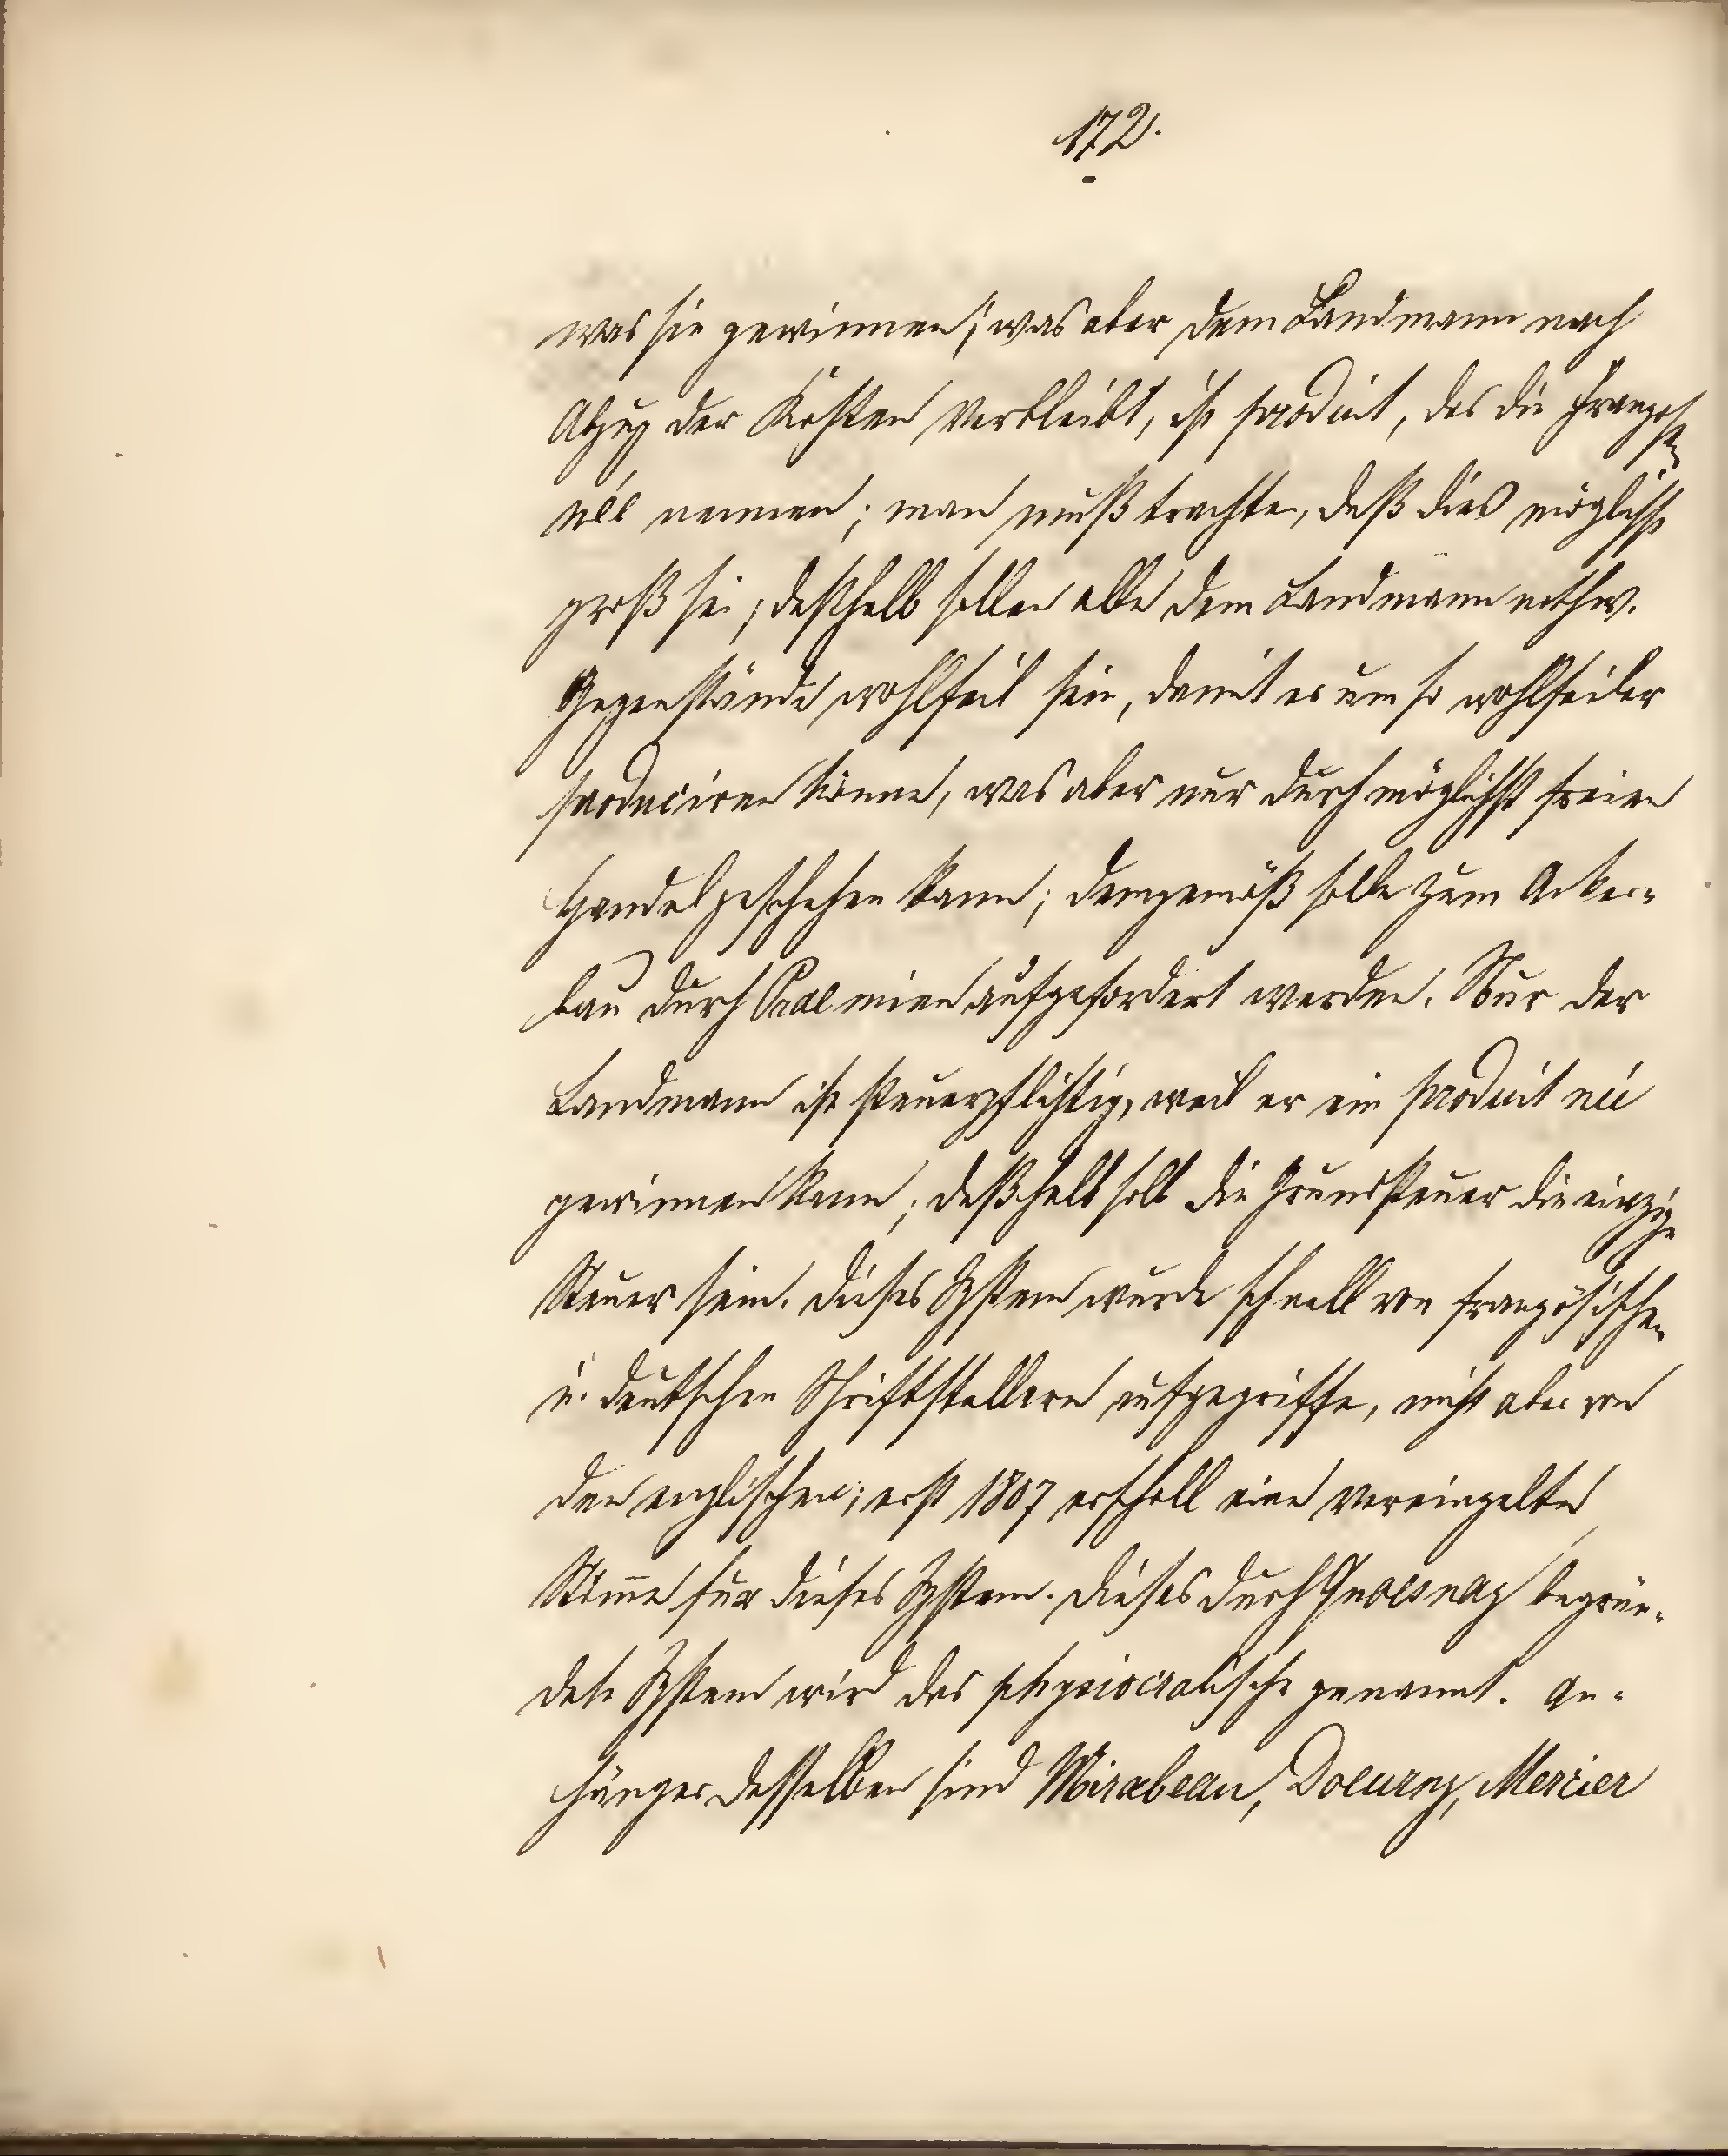 172.
was sie gewinnen; was aber dem Landmann nach
Abzug der Kosten verbleibt, ist produit, das die Franzosen
née nennen; man muß trachten, daß dies möglichst
groß sei; deßhalb sollen alle dem Landmann nothw.
Gegenstände wohlfeil sein, damit er um so wohlfeiler
produciren könne, was aber nur durch möglichst freien
Handel geschehen kann; demgemäß solle zum Acker-
bau durch Praemien aufgefordert werden. Nur der
Landmann ist steuerpflichtig, weil er ein produit née
gewinnen kann; deßhalb soll die Grundsteuer die einzige
Steuer sein. Dieses System wurde schnell von französischen
u. deutschen Schriftstellern aufgegriffen, nicht aber von
den englischen; erst 1807 erscholl eine vereinzelte
Stim̄e für dieses System. Dieses durch Quoesnay begrün-
dete System wird das physiocratische genannt. An-
hänger desselben sind Mirabeau, Mercier